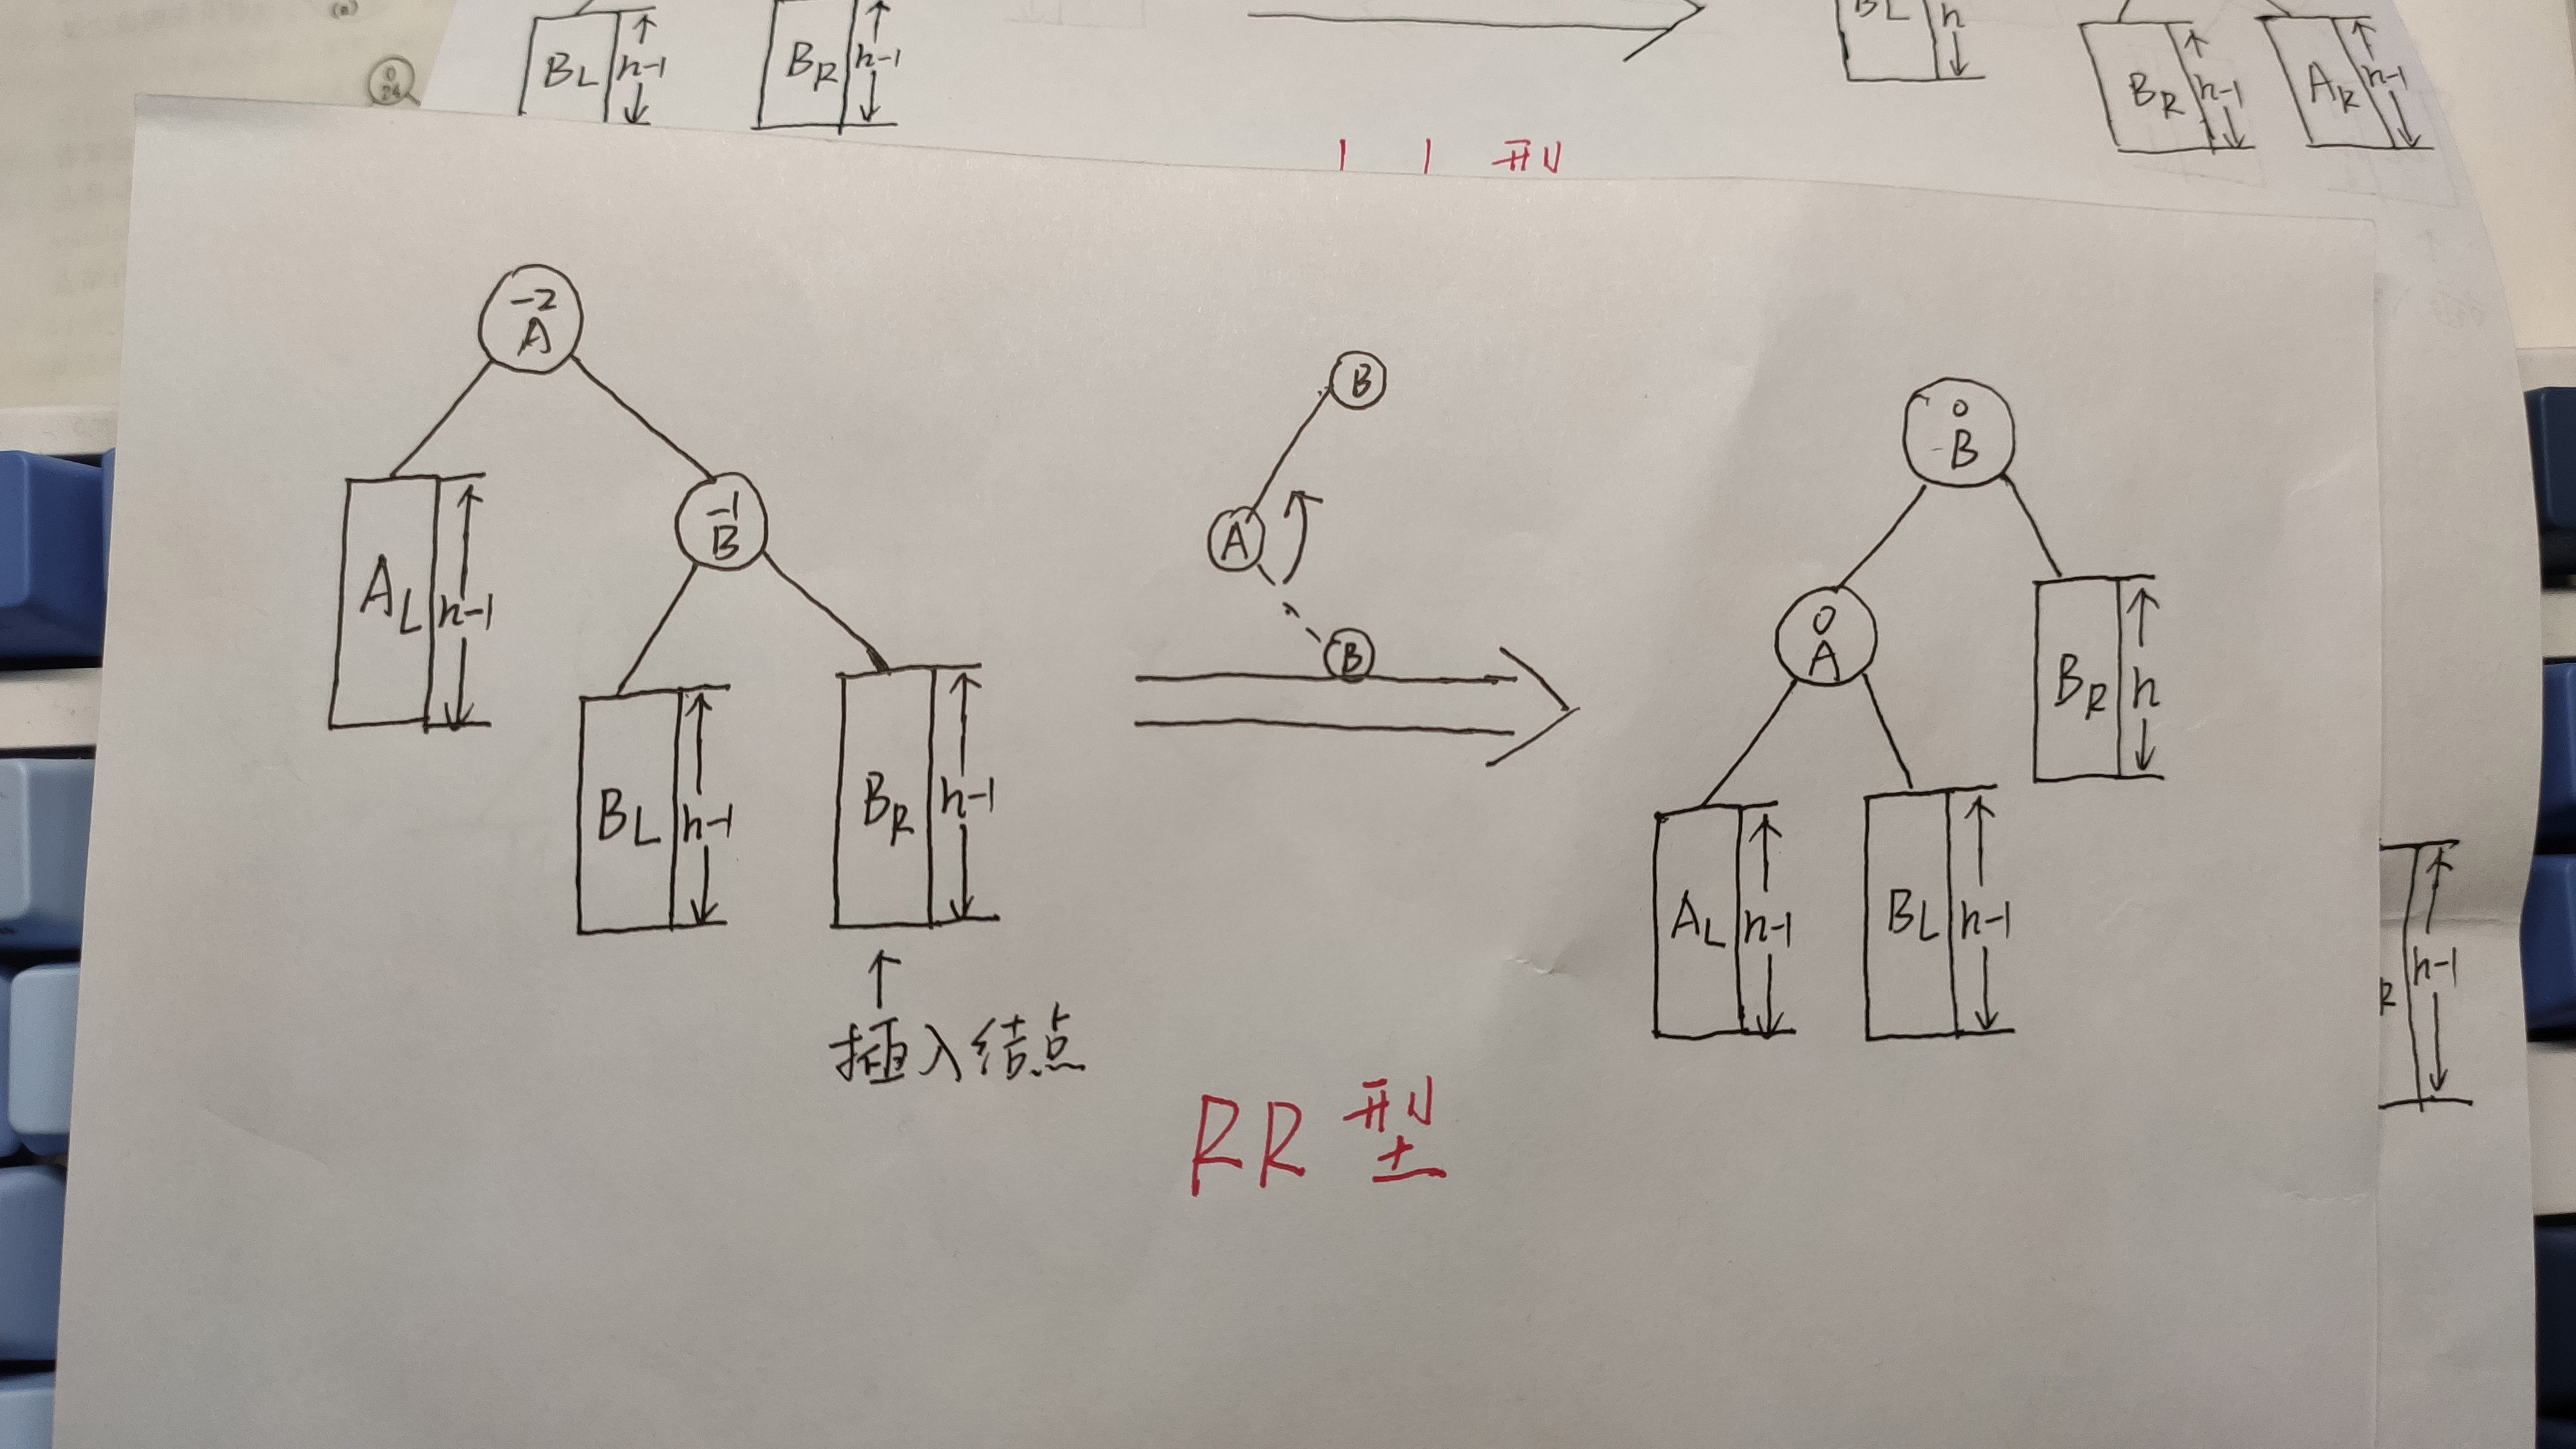 BL h-1 BR h-1
BL h
BR h-1 AR h-1
-2
A
AL h-1
-1
B
BL h-1
BR h-1
插入结点
B
A
B
0
B
0
A
BR h
AL h-1
BL h-1
R h-1
RR型